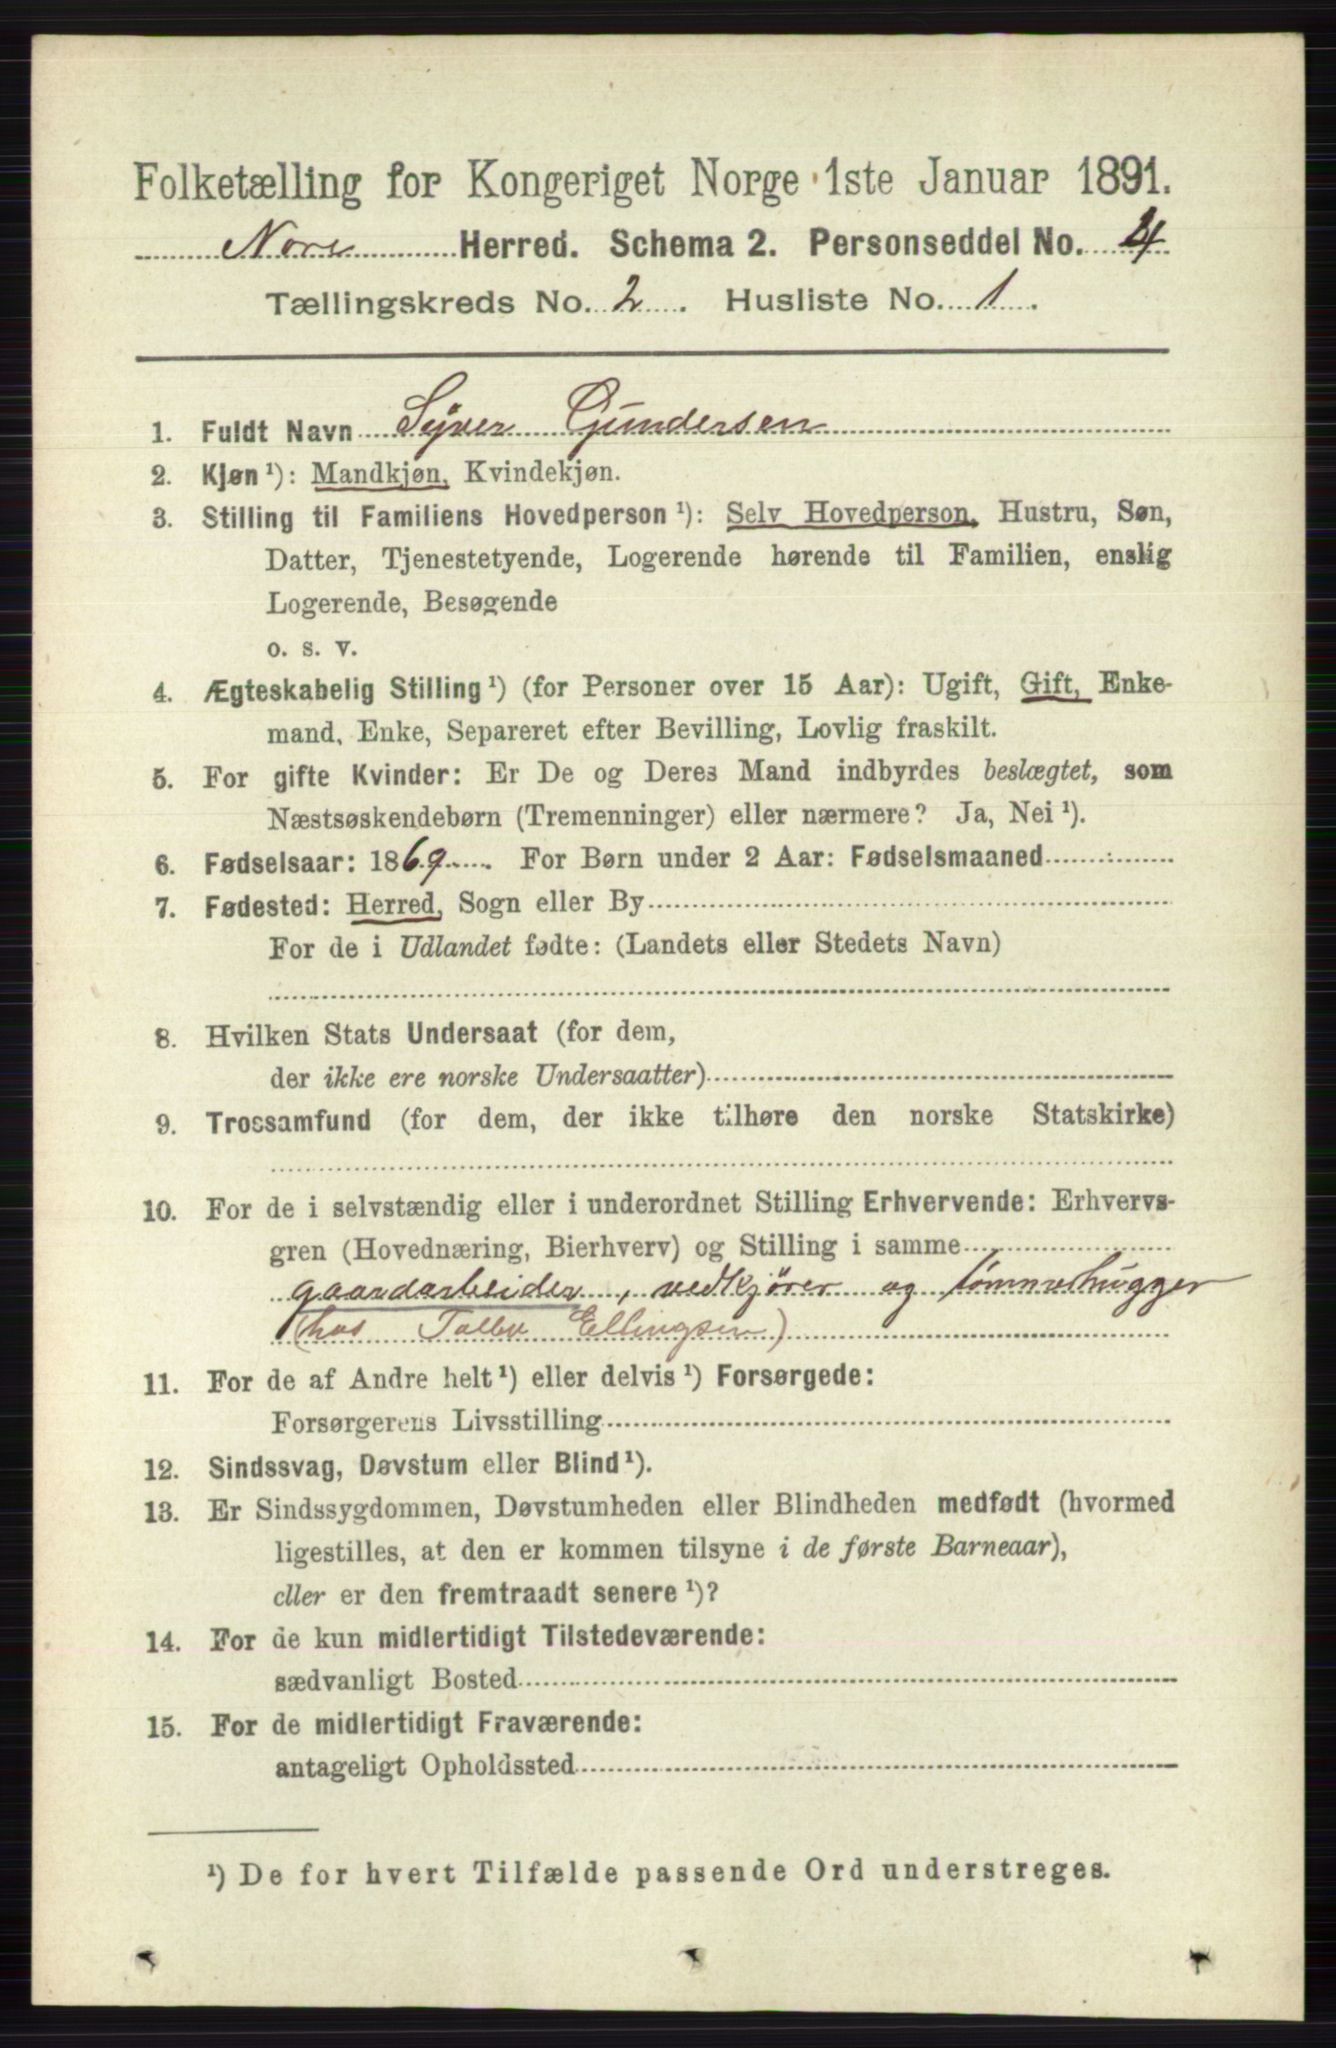 Folketælling for Kongeriget Norge 1ste Januar 1891.
Nore Herred. Schema 2. Personseddel No. 4
Tællingskreds No. 2. Husliste No. 1.
1. Fuldt Navn Syver Gundersen
2. Kjøn ¹): Mandkjøn, Kvindekjøn.
3. Stilling til Familiens Hovedperson ¹): Selv Hovedperson, Hustru, Søn,
Datter, Tjenestetyende, Logerende hørende til Familien, enslig
Logerende, Besøgende
o. s. v.
4. Ægteskabelig Stilling ¹) (for Personer over 15 Aar): Ugift, Gift, Enke-
mand, Enke, Separeret efter Bevilling, Lovlig fraskilt.
5. For gifte Kvinder: Er De og Deres Mand indbyrdes beslægtet, som
Næstsøskendebørn (Tremenninger) eller nærmere? Ja, Nei ¹).
6. Fødselsaar: 1869. For Børn under 2 Aar: Fødselsmaaned
7. Fødested: Herred, Sogn eller By
For de i Udlandet fødte: (Landets eller Stedets Navn)
8. Hvilken Stats Undersaat (for dem,
der ikke ere norske Undersaatter)
9. Trossamfund (for dem, der ikke tilhøre den norske Statskirke)
10. For de i selvstændig eller i underordnet Stilling Erhvervende: Erhvervs-
gren (Hovednæring, Bierhverv) og Stilling i samme
gaardarbeider, vedkjører og tømmerhugger
(hos Ellingsen)
11. For de af Andre helt ¹) eller delvis ¹) Forsørgede:
Forsørgerens Livsstilling
12. Sindssvag, Døvstum eller Blind ¹).
13. Er Sindssygdommen, Døvstumheden eller Blindheden medfødt (hvormed
ligestilles, at den er kommen tilsyne i de første Barneaar),
eller er den fremtraadt senere ¹)?
14. For de kun midlertidigt Tilstedeværende:
sædvanligt Bosted
15. For de midlertidigt Fraværende:
antageligt Opholdssted
¹) De for hvert Tilfælde passende Ord understreges.